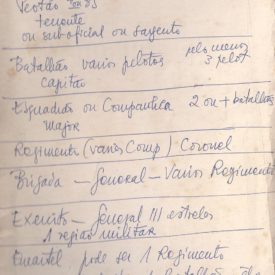 tenente
ou sub oficial ou sargento
Batalhão varios pelotos pelo menos 3 pelot
capitão
Esquadrão ou Companhia 2 ou + batalhões
major
Regimento (varios Comp) Coronel
Brigada — General — Varios Regimentos
Exercito — General III estrelas
1 região militar
Quartel pode ser 1 Regimento